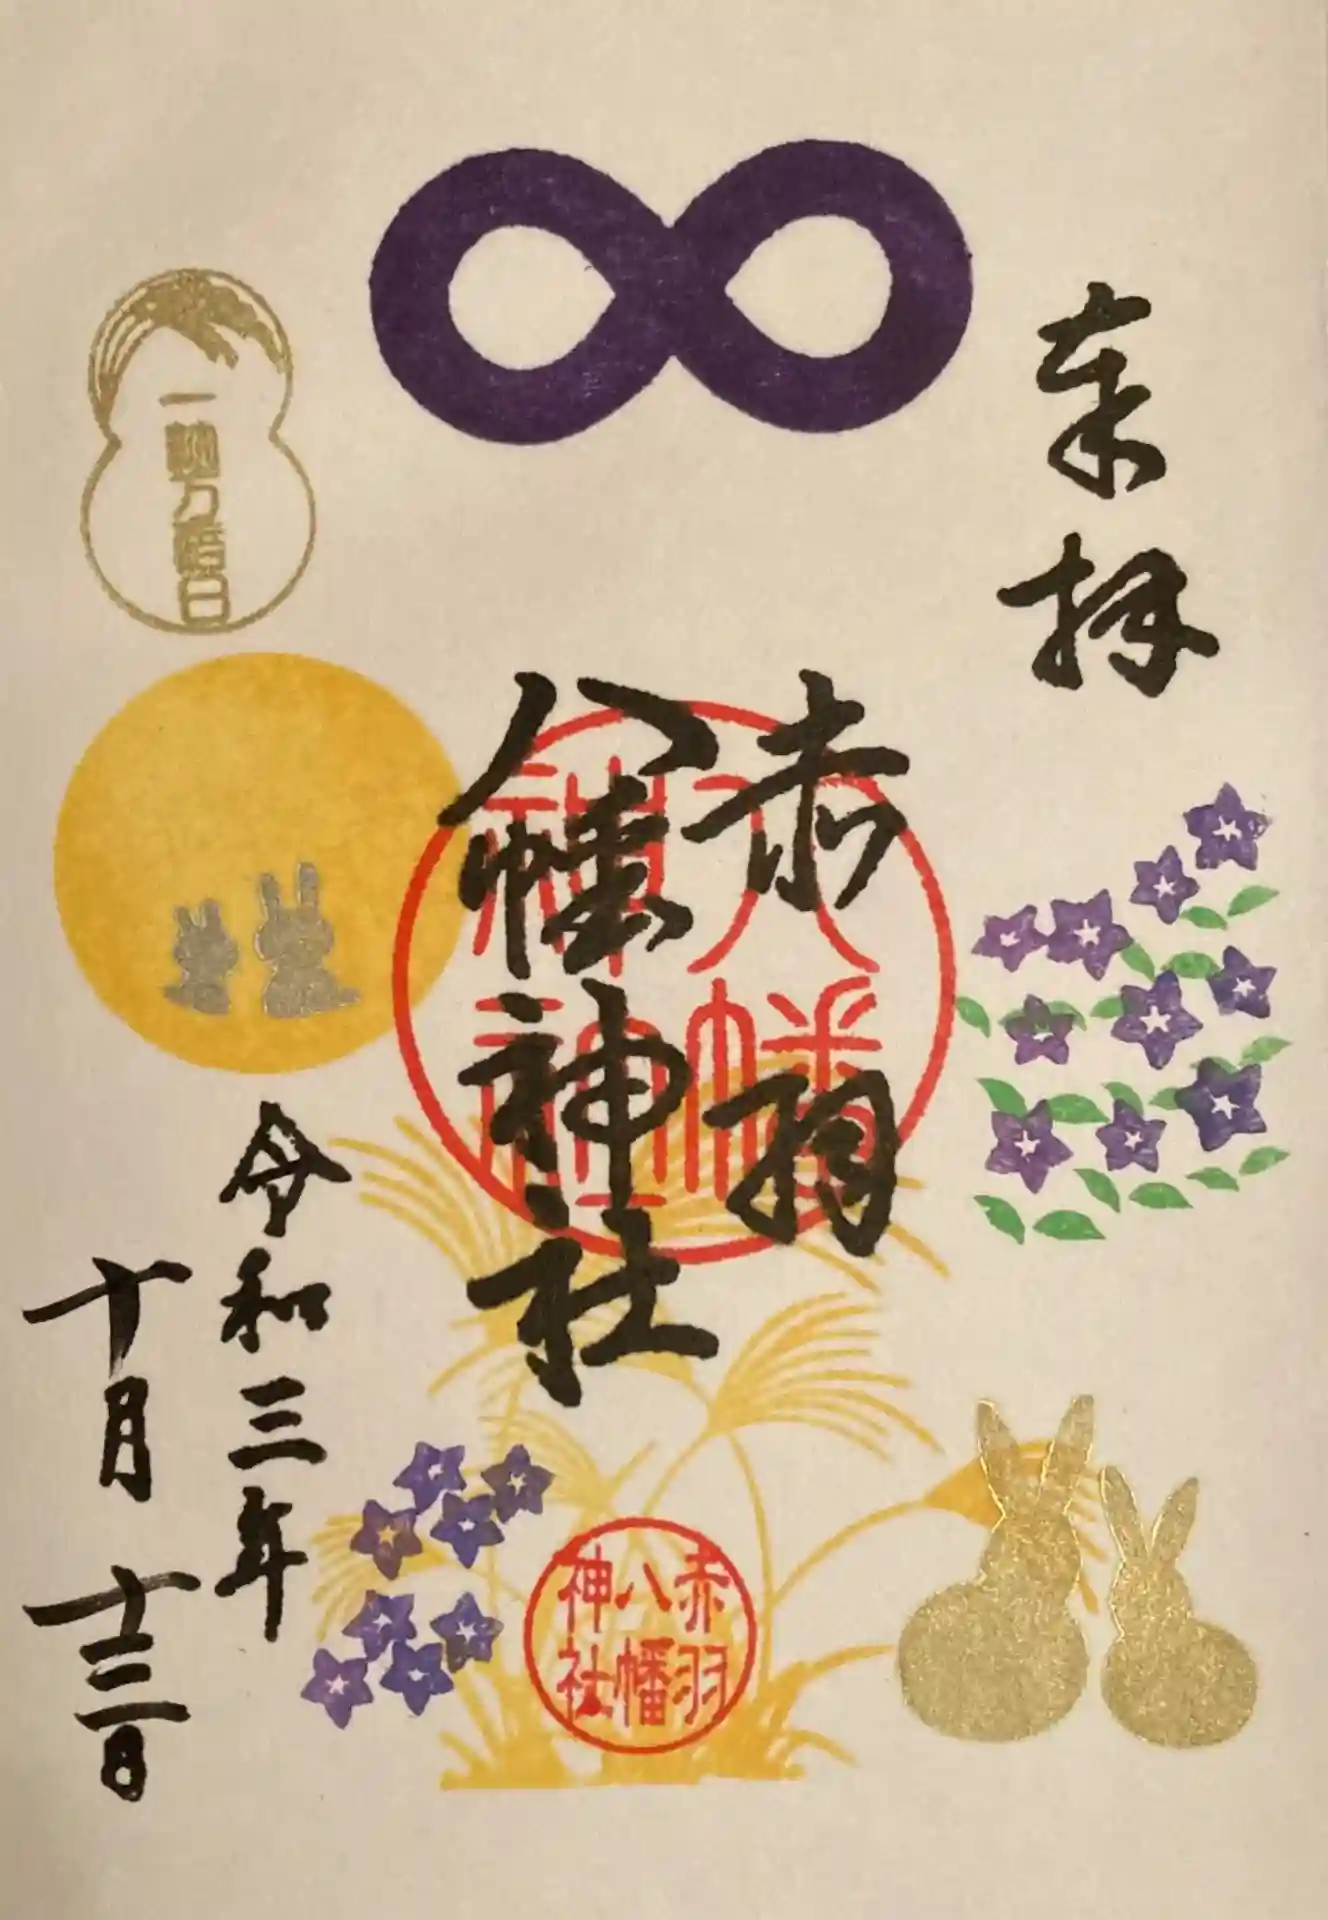 奉拝
赤羽
八幡神社
八幡
神社
一粒万倍日
令和三年
十月十三日
赤羽
八幡
神社